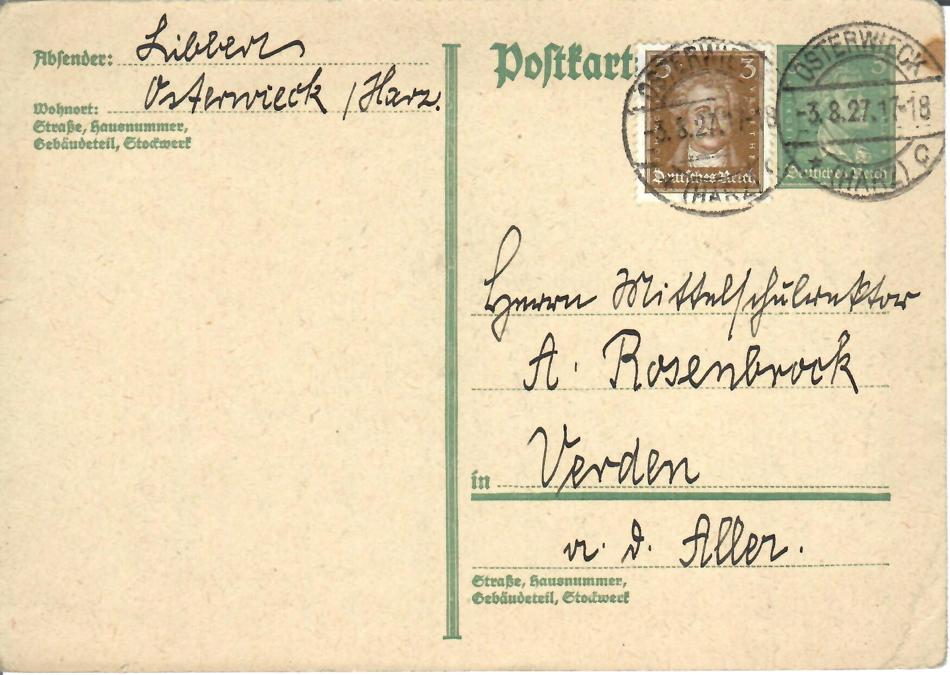 Absender: Libbert
Osterwieck / Harz.
Wohnort:
Straße, Hausnummer,
Gebäudeteil, Stockwerk
Postkart
3 3
Deutsches Reich
OSTERWIECK
-3.8.27.17-18
(HARZ)
5
Deutsches Reich
OSTERWIECK
-3.8.27.17-18
(HARZ) C
Herrn Mittelschulrektor
A. Rosenbrock
in Verden
a. d. Aller.
Straße, Hausnummer,
Gebäudeteil, Stockwerk